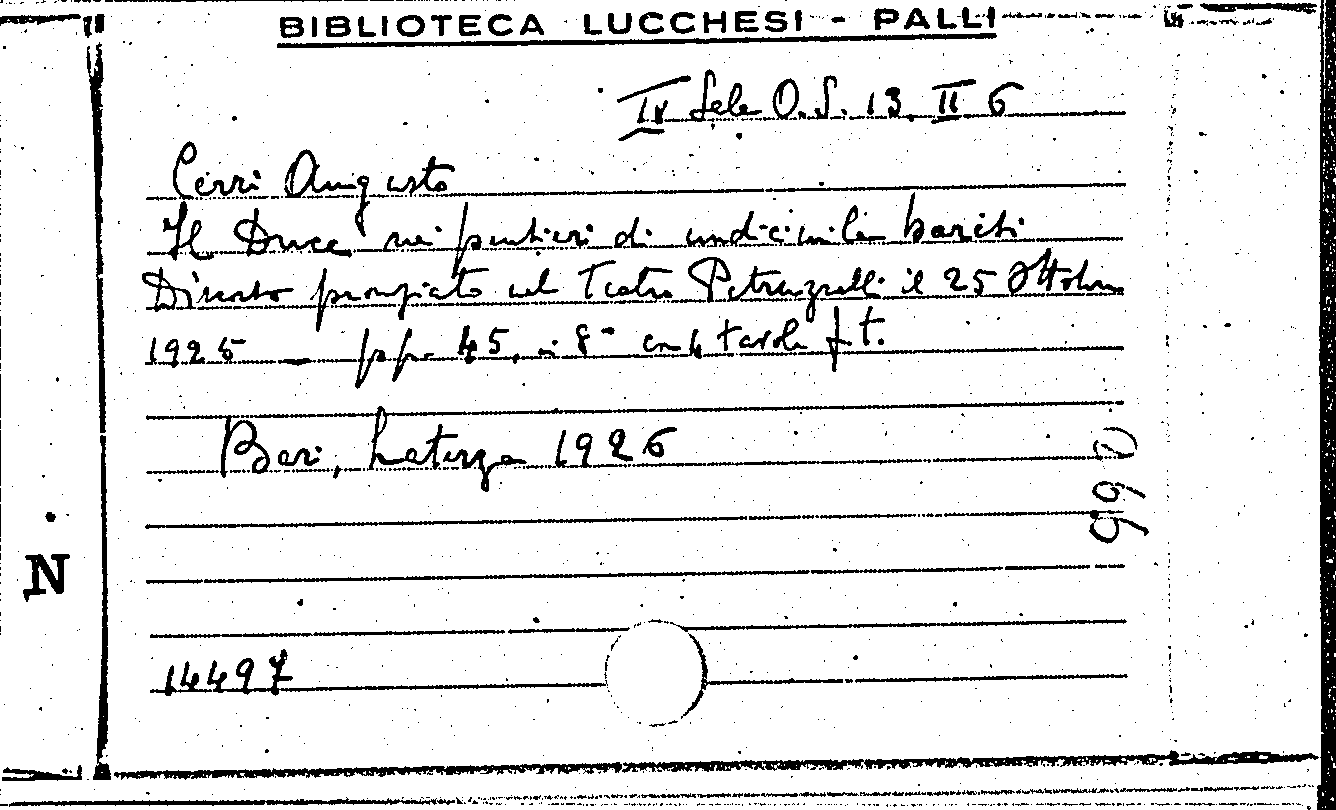 BIBLIOTECA LUCCHESI - PALLI
IV Sala O. S. 13. II 6
Cerri Augusto
Il Duce nei pensieri di undicimila baresi
Discorso pronunziato nel Teatro Petruzzelli il 25 Ottobre
1925 — pp. 45, in 8° con 4 tavole f. t.
Bari, Laterza 1926
N
14497